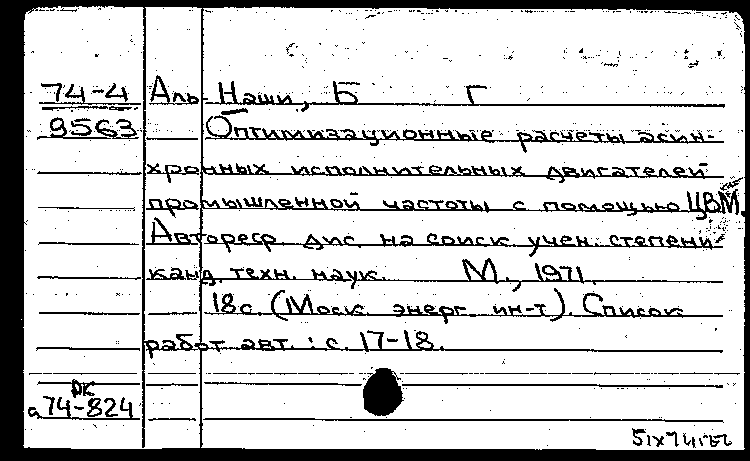 74-4 Аль-Наши, Б Г
9563 Оптимизационные расчеты асин-
хронных исполнительных двигателей
промышленной частоты с помощью ЦВМ.
Автореф. дис. на соиск. учен. степени
канд. техн. наук. М., 1971.
18с. (Моск. энерг. ин-т). Список
работ авт.: с. 17-18.
РК
а 74-824